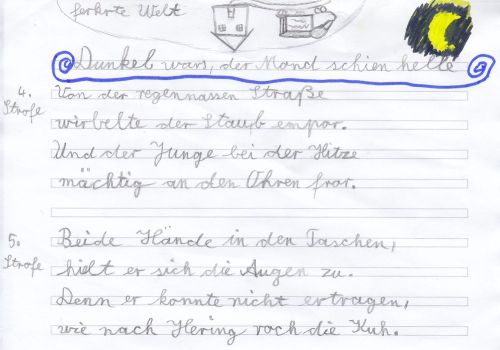 ferkrte Welt
Dunkel wars, der Mond schien helle
4. Strofe
Von der regennassen Straße
wirbelte der Staub empor.
Und der Junge bei der Hitze
mächtig an den Ohren fror.
5. Strofe
Beide Hände in den Taschen,
hielt er sich die Augen zu.
Denn er konnte nicht ertragen,
wie nach Hering roch die Kuh.